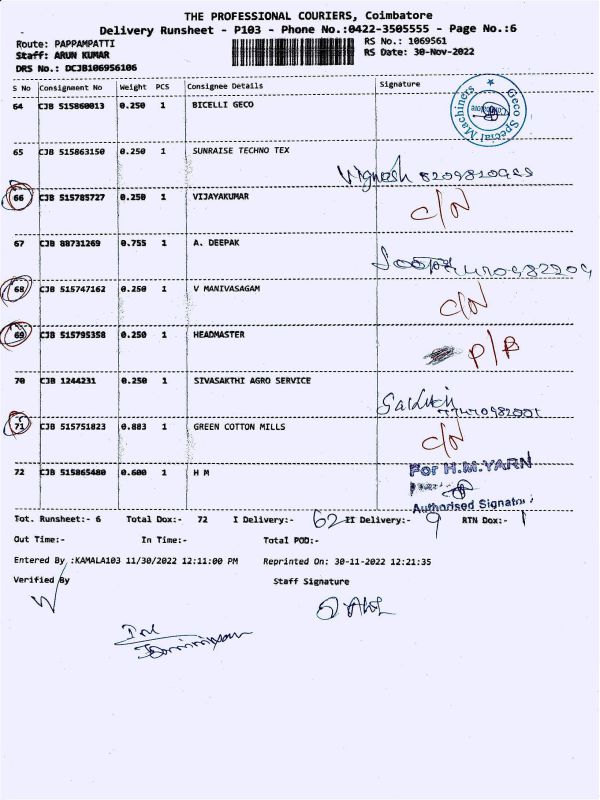 THE PROFESSIONAL COURIERS, Coimbatore
Delivery Runsheet - P103 - Phone No.:0422-3505555 - Page No.:6
Route: PAPPAMPATTI RS No.: 1069561
Staff: ARUN KUMAR RS Date: 30-Nov-2022
DRS No.: DCJB106956106
S No Consignment No Weight PCS Consignee Details Signature
64 CJB 515860013 0.250 1 BICELLI GECO
Geco Special Machiners
65 CJB 515863150 0.250 1 SUNRAISE TECHNO TEX
Vignesh
66 CJB 515785727 0.250 1 VIJAYAKUMAR C/N
67 CJB 88731269 0.755 1 A. DEEPAK
68 CJB 515747162 0.250 1 V MANIVASAGAM C/N
69 CJB 515795358 0.250 1 HEADMASTER P/B
70 CJB 1244231 0.250 1 SIVASAKTHI AGRO SERVICE
71 CJB 515751823 0.883 1 GREEN COTTON MILLS C/N
72 CJB 515865480 0.600 1 H M For H.M.YARN
Authorised Signatory
Tot. Runsheet:- 6 Total Dox:- 72 I Delivery:- 62 II Delivery:- 9 RTN Dox:- 1
Out Time:- In Time:- Total POD:-
Entered By :KAMALA103 11/30/2022 12:11:00 PM Reprinted On: 30-11-2022 12:21:35
Verified By Staff Signature